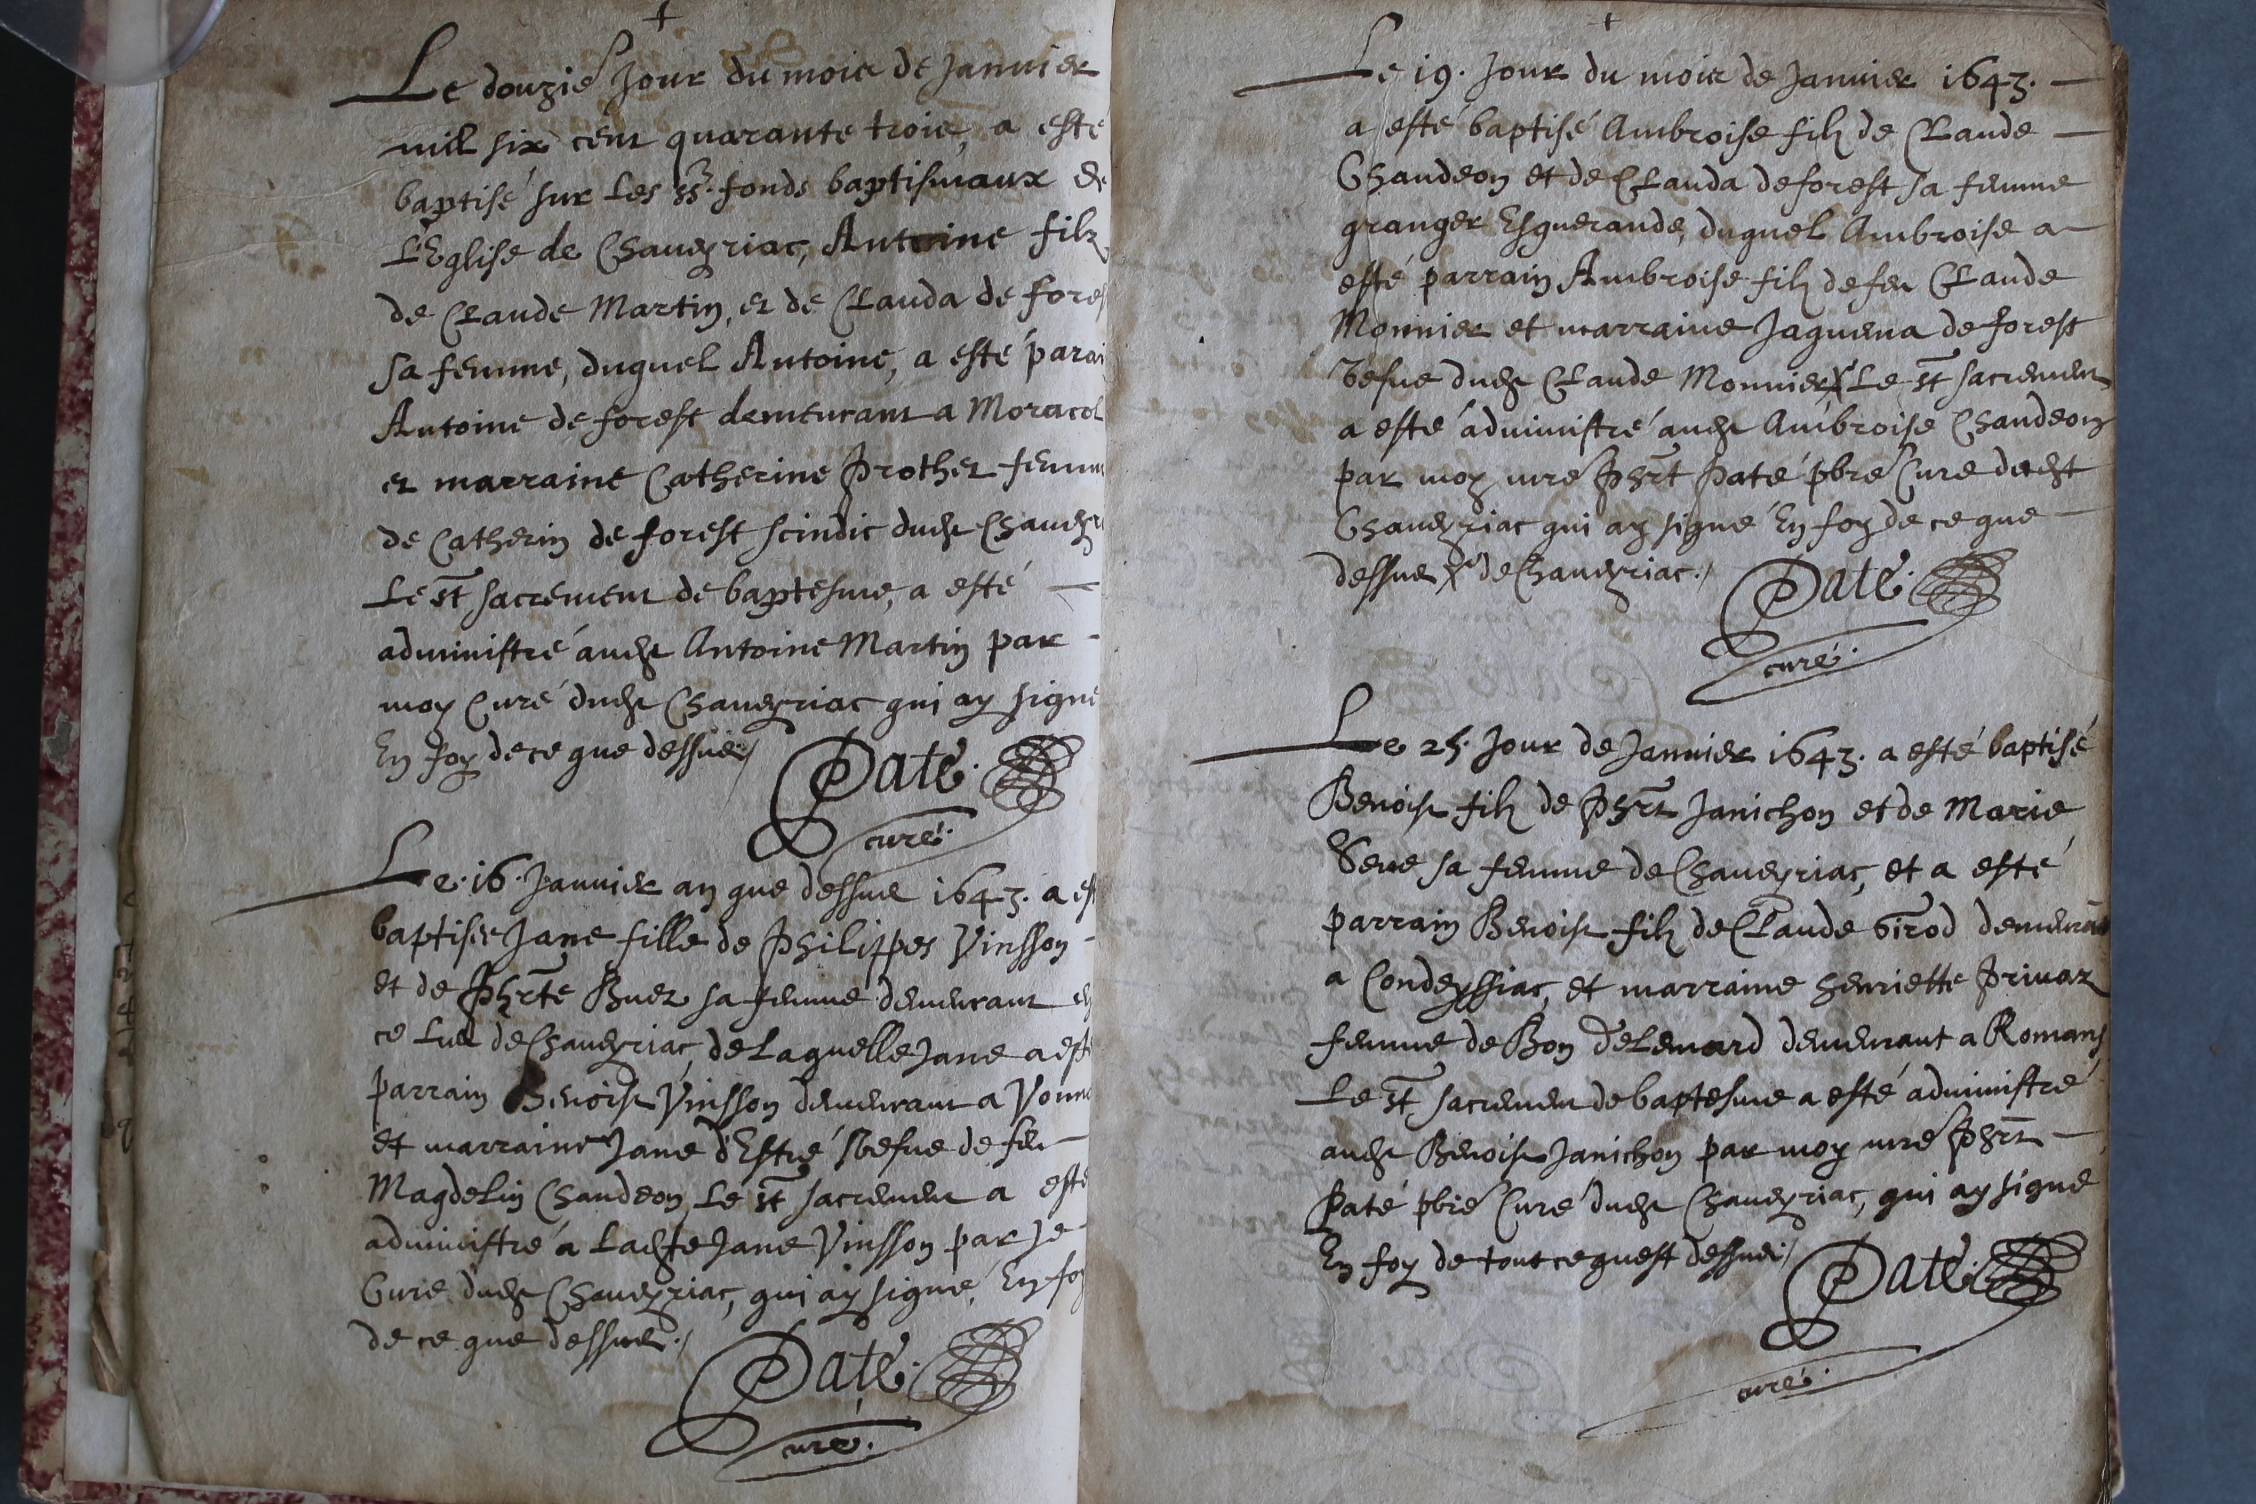 Le douzie Jour du mois de Janvier
mil six cent quarante trois, a esté
baptisé sur les ss. fonds baptismaux de
L'Eglise de Chaveyriac, Antoine filz
de Claude Martin, et de Clauda de fores
sa femme, duquel Antoine, a esté parai
Antoine de forest demeurant a Moracol
et marraine Catherine Prothet femme
de Catherin de forest scindic dudt Chavey
Le st sacrement de baptesme, a esté
administré audt Antoine Martin par
moy Curé dudt Chaveyriac qui ay signé
En foy de ce que dessus./
Paté.
curé.
Le .16. Janvier an que dessus 1643. a est
baptisée Jane fille de Philippes Vinsson
et de Phrte Buet sa femme demeurant en
ce lieu de Chaveyriac, de laquelle Jane a esté
parrain Benoist Vinsson demeurant a Vonn
et marraine Jane d'Estré vefve de feu
Magdelin Chandeon, Le st sacrement a esté
administré a ladte Jane Vinsson par Je
Curé dudt Chaveyriac, qui ay signé, En foy
de ce que dessus./
Paté.
curé.
Le 19. Jour du mois de Janvier 1643.
a esté baptisé Ambroise filz de Claude
Chandeon et de Clauda deforest sa femme
granger Esguerande, duquel Ambroise a
esté parrain Ambroise filz de feu Claude
Monnier et marraine Jaquema de forest
vefve dudt Claude Monnier X Le st sacrement
a esté administré audt Ambroise Chandeon
par moy mre Phrt Paté pbre Curé dudt
Chaveyriac qui ay signé En foy de ce que
dessus X de Chaveyriac./
Paté.
curé.
Le 25. Jour de Janvier 1643. a esté baptisé
Benoist filz de Phrt Janichon et de Marie
Seve sa femme de Chaveyriac, et a esté
parrain Benoist filz de Claude Girod demeurat
a Condeyssiac, et marraine henriette Privaz
femme de Bon DeLemard demeurant a Romans
Le st sacrement de baptesme a esté administré
audt Benoist Janichon par moy mre Phrt
Paté pbre Curé dudt Chaveyriac, qui ay signé
En foy de tout ce quest dessus./
Paté.
curé.